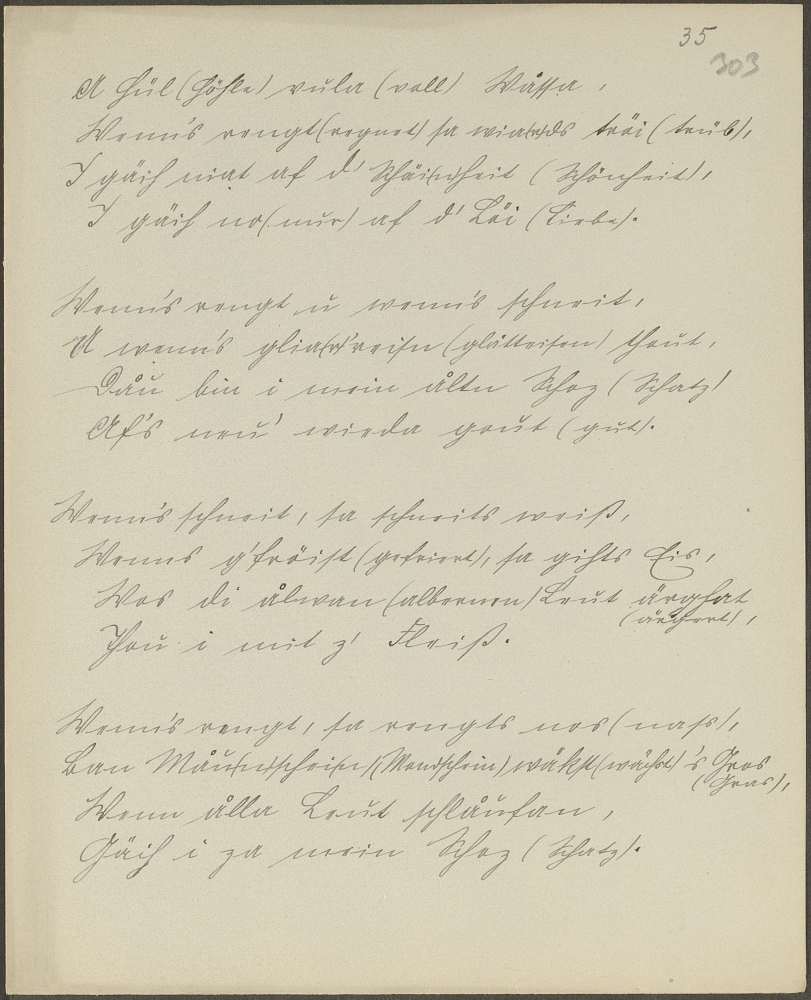 35
303
A Hül (Höhle) vula (voll) Wåssa,
Wenn's rengt (regnet) sa wia(r)ds träi (trüb),
I gäih niat af d' Schäi(n)heit (Schönheit),
I gäih no (nur) af d' Löi (Liebe).
Wenn's rengt u wenn's schneit,
U wenn's glia(r)'reisn (glatteisen) thout,
Dåu bin i mein åltn Schoz (Schatz)
Af's neu' wieda gout (gut).
Wenn's schneit, sa schneits weiß,
Wenns g'fröist (gefriert), sa gihts Eis,
Wos di ålwan (albernen) Leut ärghat
(ärgert),
Thou i mit z' Fleiß.
Wenn's rengt, sa rengts nos (nass),
Ban Måu(n)schei(n) (Mondschein) wäkst (wächst) 's Gros
(Gras),
Wenn ålla Leut schlåufan,
Gäih i za mein Schoz (Schatz).